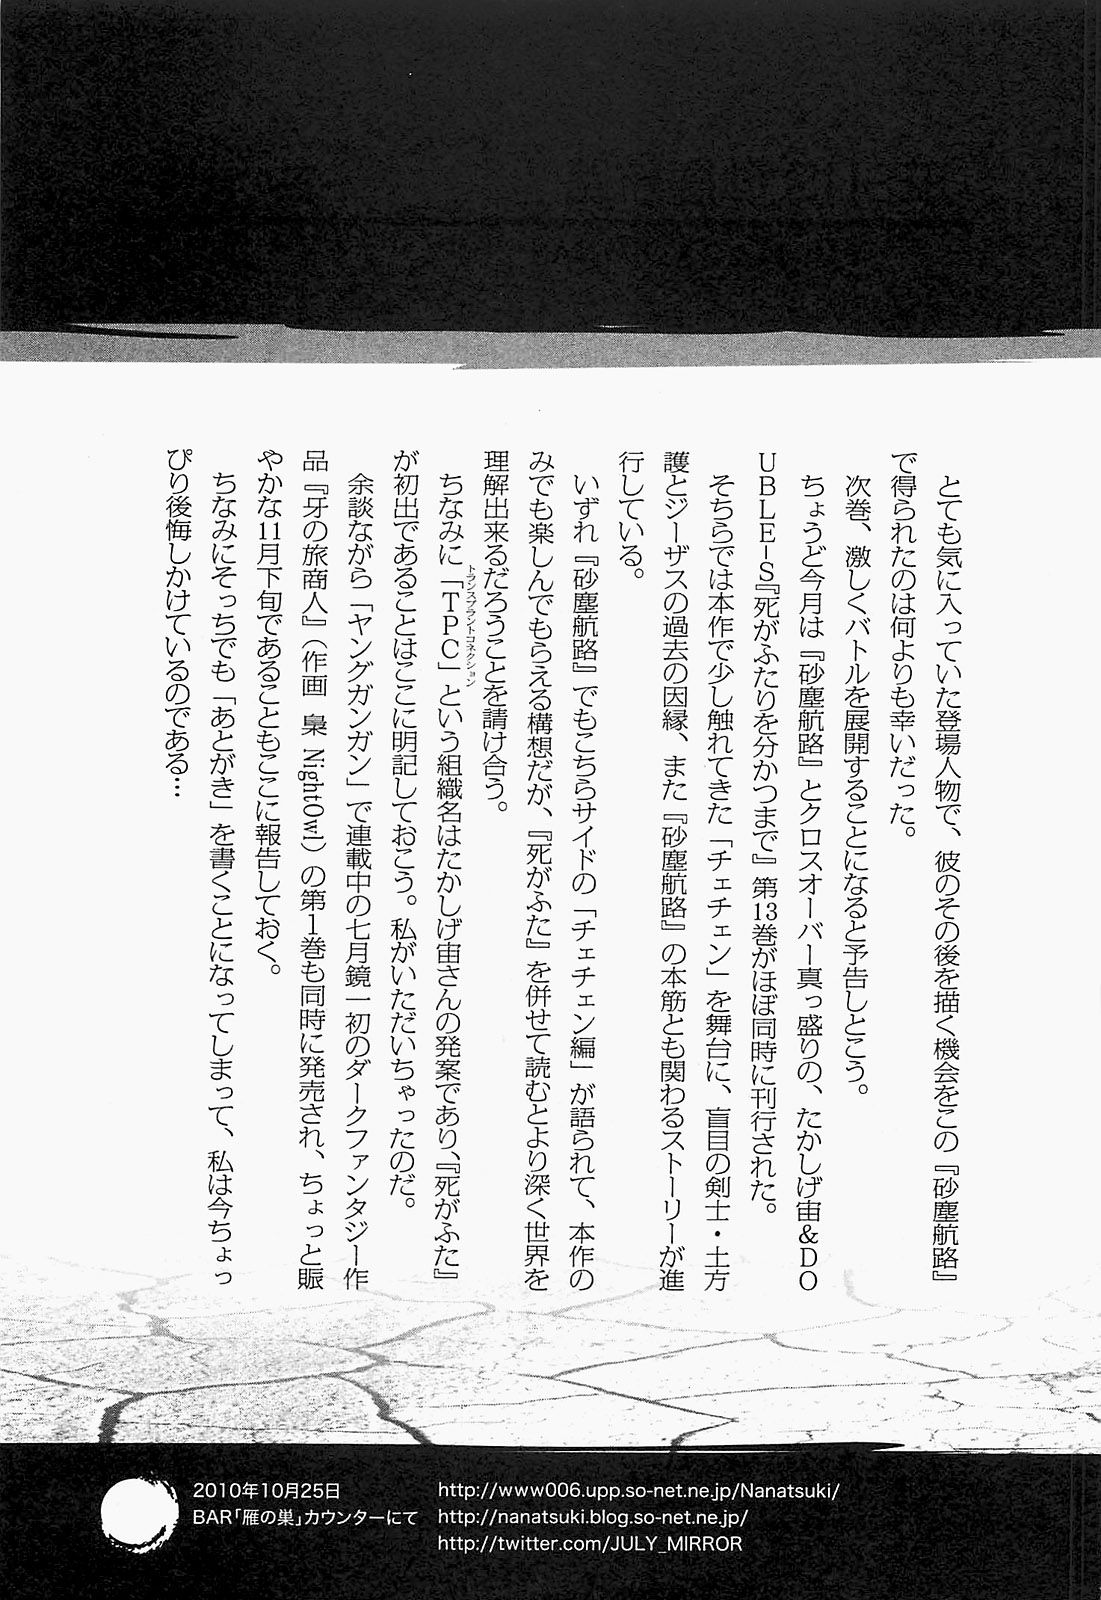 とても気に入っていた登場人物で、彼のその後を描く機会をこの『砂塵航路』
で得られたのは何よりも幸いだった。
次巻、激しくバトルを展開することになると予告しとこう。
ちょうど今月は『砂塵航路』とクロスオーバー真っ盛りの、たかしげ宙＆ＤＯ
ＵＢＬＥ−Ｓ『死がふたりを分かつまで』第13巻がほぼ同時に刊行された。
そちらでは本作で少し触れてきた「チェチェン」を舞台に、盲目の剣士・土方
護とジーザスの過去の因縁、また『砂塵航路』の本筋とも関わるストーリーが進
行している。
いずれ『砂塵航路』でもこちらサイドの「チェチェン編」が語られて、本作の
みでも楽しんでもらえる構想だが、『死がふた』を併せて読むとより深く世界を
理解出来るだろうことを請け合う。
トランスプラントコネクション
ちなみに「ＴＰＣ」という組織名はたかしげ宙さんの発案であり、『死がふた』
が初出であることはここに明記しておこう。私がいただいちゃったのだ。
余談ながら「ヤングガンガン」で連載中の七月鏡一初のダークファンタジー作
品『牙の旅商人』（作画　梟 NightOwl）の第１巻も同時に発売され、ちょっと賑
やかな11月下旬であることもここに報告しておく。
ちなみにそっちでも「あとがき」を書くことになってしまって、私は今ちょっ
ぴり後悔しかけているのである…
2010年10月25日
BAR「雁の巣」カウンターにて
http://www006.upp.so-net.ne.jp/Nanatsuki/
http://nanatsuki.blog.so-net.ne.jp/
http://twitter.com/JULY_MIRROR